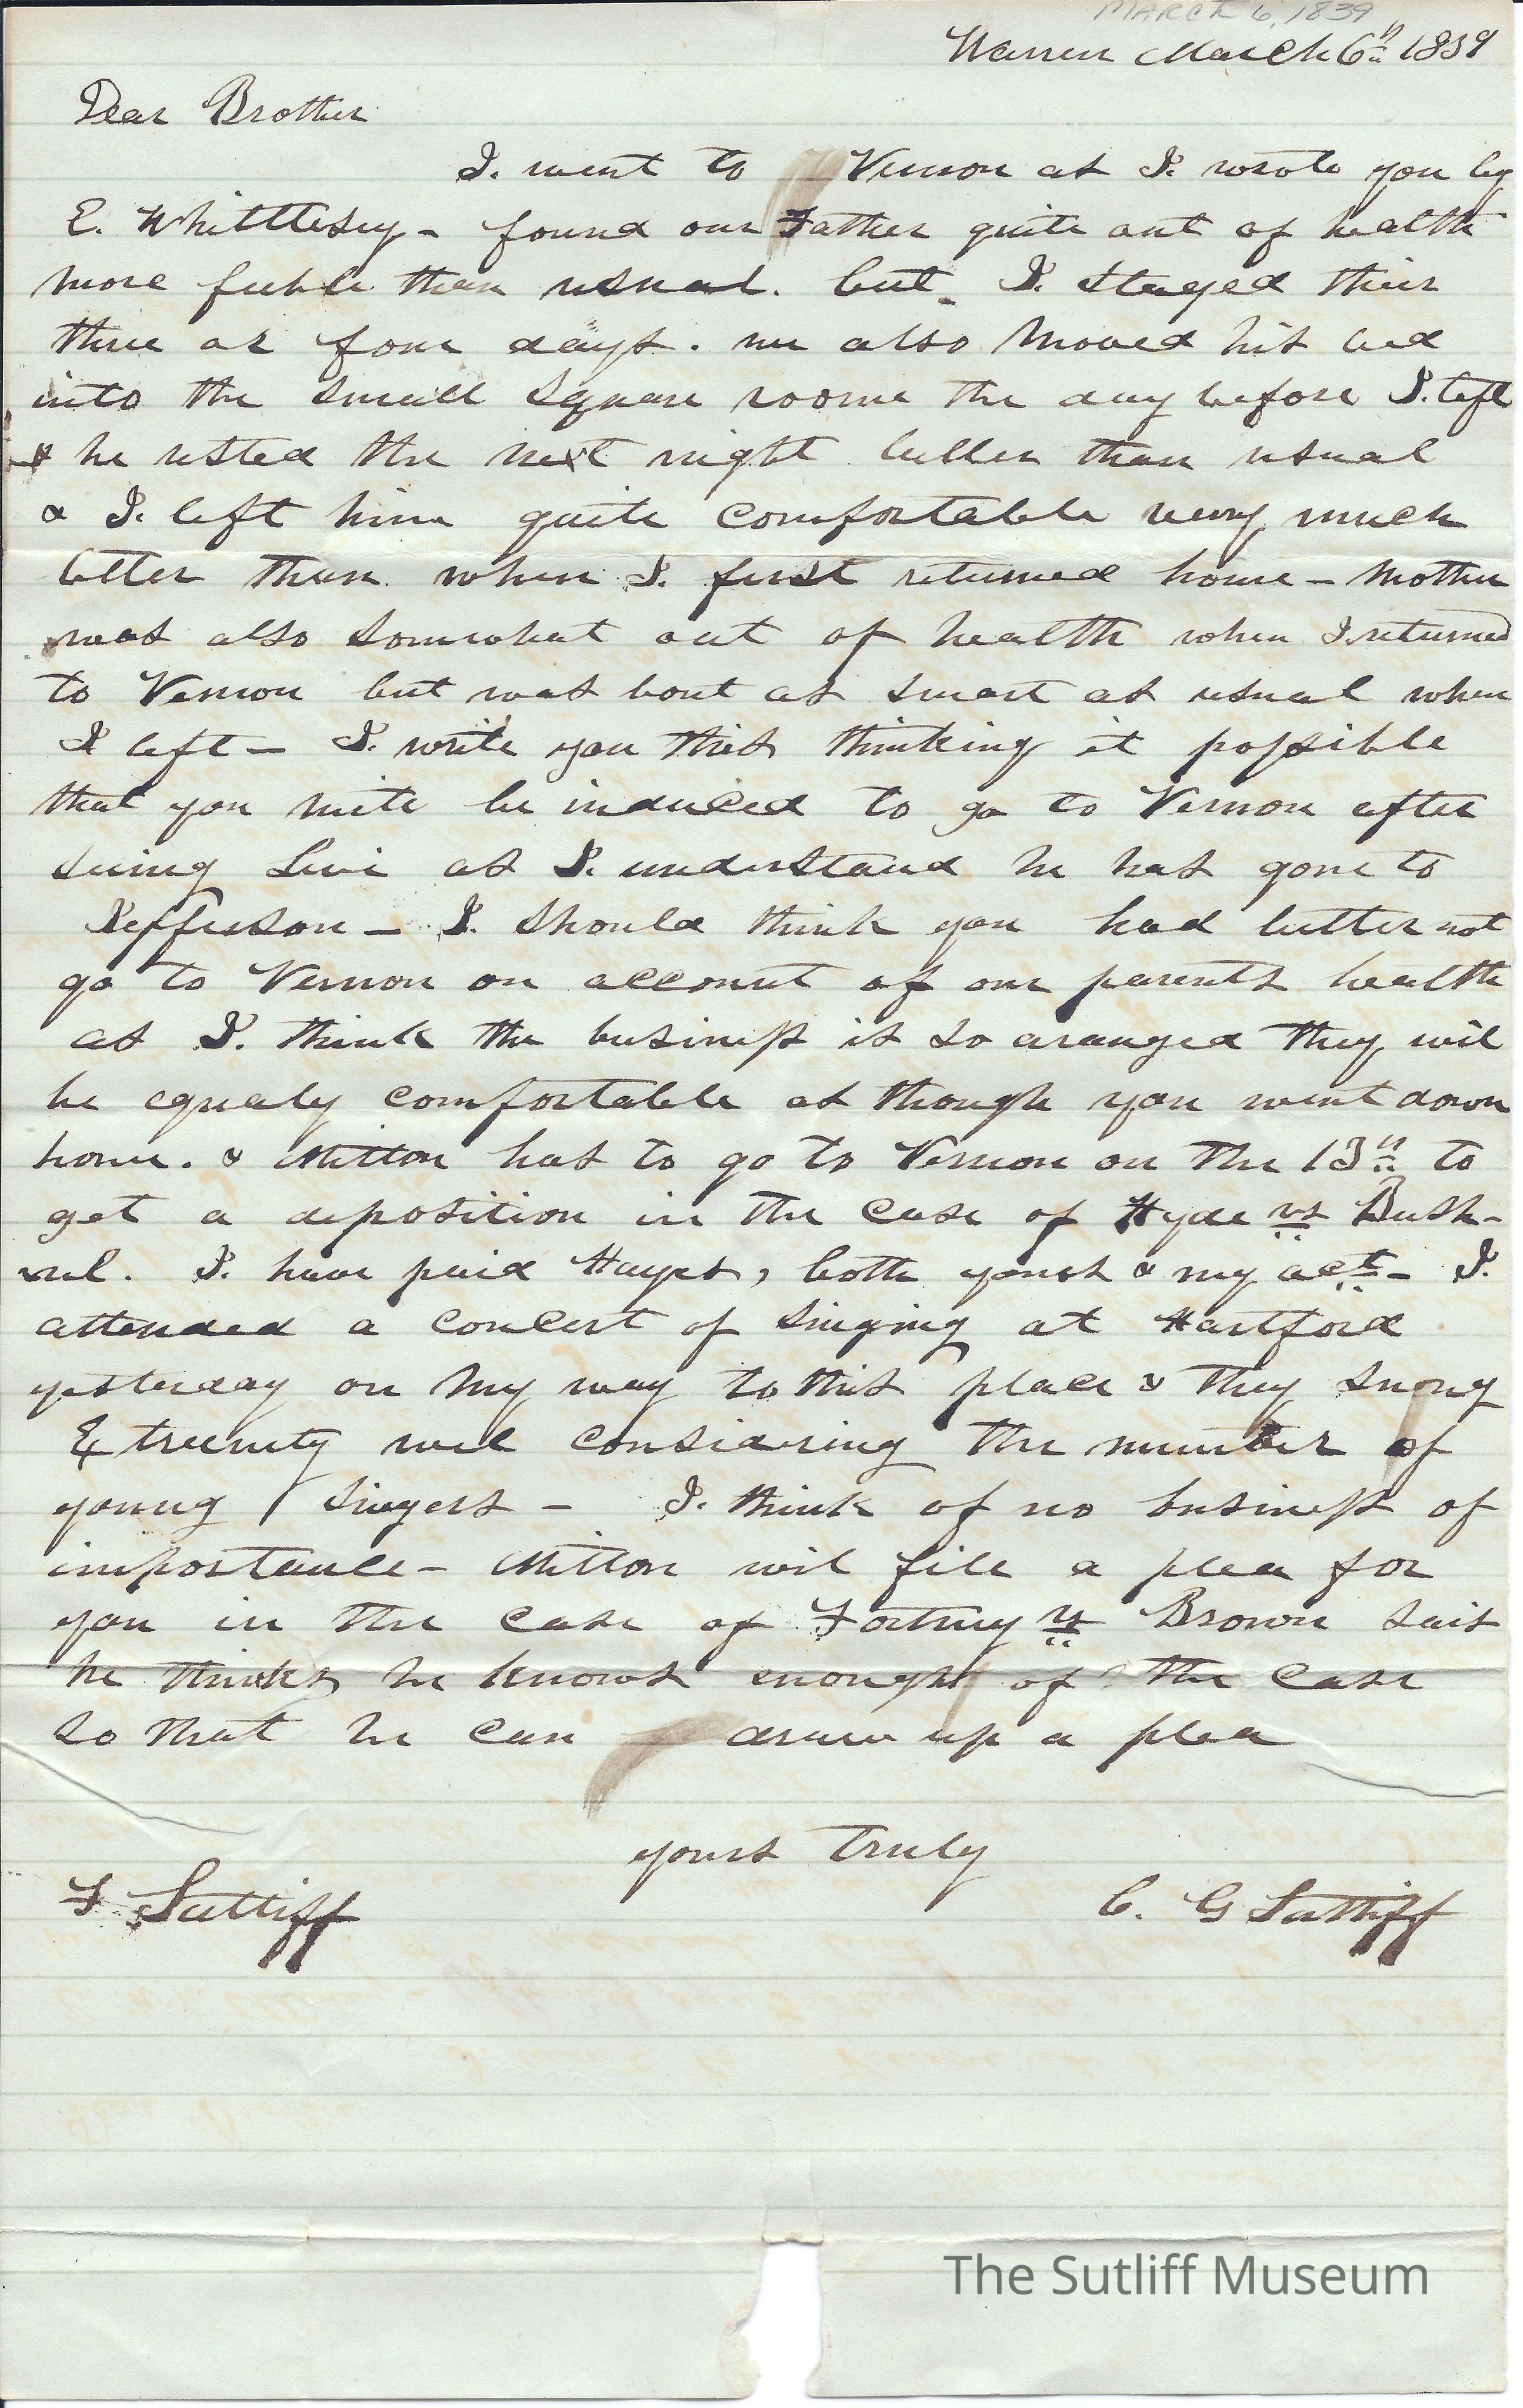 MARCH 6, 1839
Warren March 6th 1839
Dear Brother
I. went to Vernon as I. wrote you by
E. Whittlesey - found our Father quite out of health
more feeble than usual. but. I. stayed their
three or four days. we also moved his bed
into the small square roome the day before I. left
& he rested the next night better than usual
& I. left him quite comfortable very much
better than when I. first returned home - Mother
was also somewhat out of health when I returned
to Vernon but was bout as smart as usual when
I left - I. write you this thinking it possible
that you mite be induced to go to Vernon after
seeing Levi as I. understand he has gone to
Jefferson - I. should think you had better not
go to Vernon on account of our parents health
as I. think the business is so aranged they wil
be equaly comfortable as though you went down
home. & Milton has to go to Vernon on the 13th to
get a deposition in the case of Hyde vs Bush-
nel. I. have paid Hayes, both yours & my act - I.
attended a concert of singing at Hartford
yesterday on my way to this place & they snong
Extreemly well considering the number of
young singers - I. think of no business of
importance - Milton wil file a plea for
you in the case of Fortney vs Brown sais
he thinks he knows enough of the case
so that he can draw up a plea
yours truly
F Sutliff C. G Sutliff
The Sutliff Museum